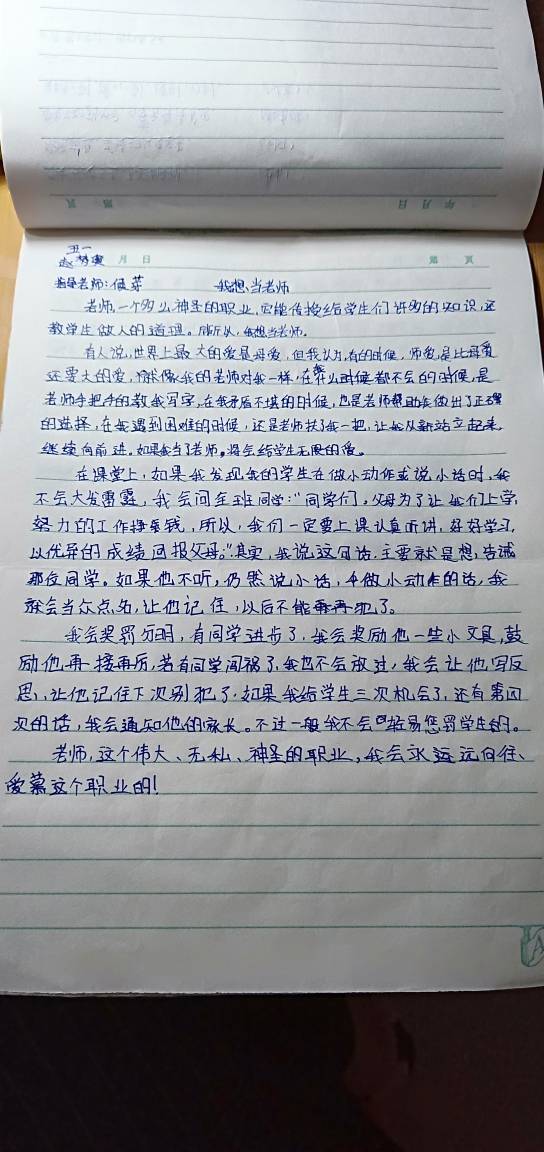 年 月 日
第 页
五一
赵梦 月 日 第 页
指导老师：伍萍 我想当老师
老师，一个多么神圣的职业，它能传授给学生们许多的知识，还
教学生做人的道理。所以，我想当老师。
有人说，世界上最大的爱是母爱，但我认为，有的时候，师爱是比母爱
还要大的爱，就像我的老师对我一样，在我什么时候都不会的时候，是
老师手把手的教我写字，在我矛盾不堪的时候，也是老师帮助我做出了正确
的选择，在我遇到困难的时候，还是老师扶了我一把，让我从新站立起来，
继续向前进。如果我当了老师，将会给学生无限的爱。
在课堂上，如果我发现我的学生在做小动作或说小话时，我
不会大发雷霆，我会问全班同学：“同学们，父母为了让我们上学，
努力的工作挣钱，所以，我们一定要上课认真听讲，好好学习，
以优异的成绩回报父母。”其实，我说这句话，主要就是想，告诫
那位同学。如果他不听，仍然说小话，做小动作的话，我
就会当众点名，让他记住，以后不能再犯了。
我会奖罚分明，有同学进步了，我会奖励他一些小文具，鼓
励他再接再厉，若有同学闯祸了，我也不会放过，我会让他写反
思，让他记住下次别犯了。如果我给学生三次机会了，还有第四
次的话，我会通知他的家长。不过一般我不会轻易惩罚学生的。
老师，这个伟大、无私、神圣的职业，我会永远远向往、
爱慕这个职业的！